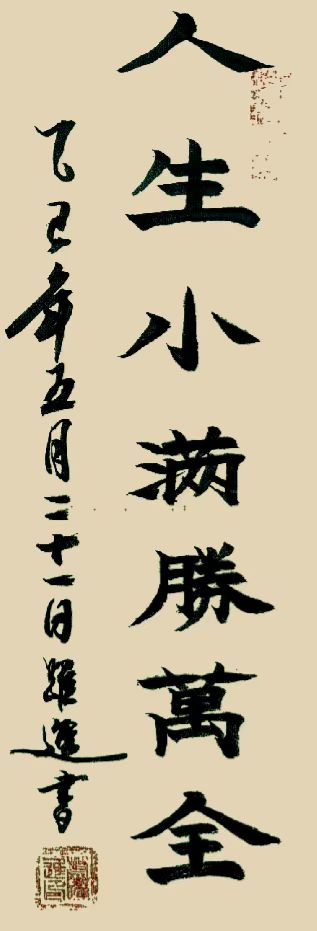 人生小满勝萬全
乙巳年五月二十一日羅進書